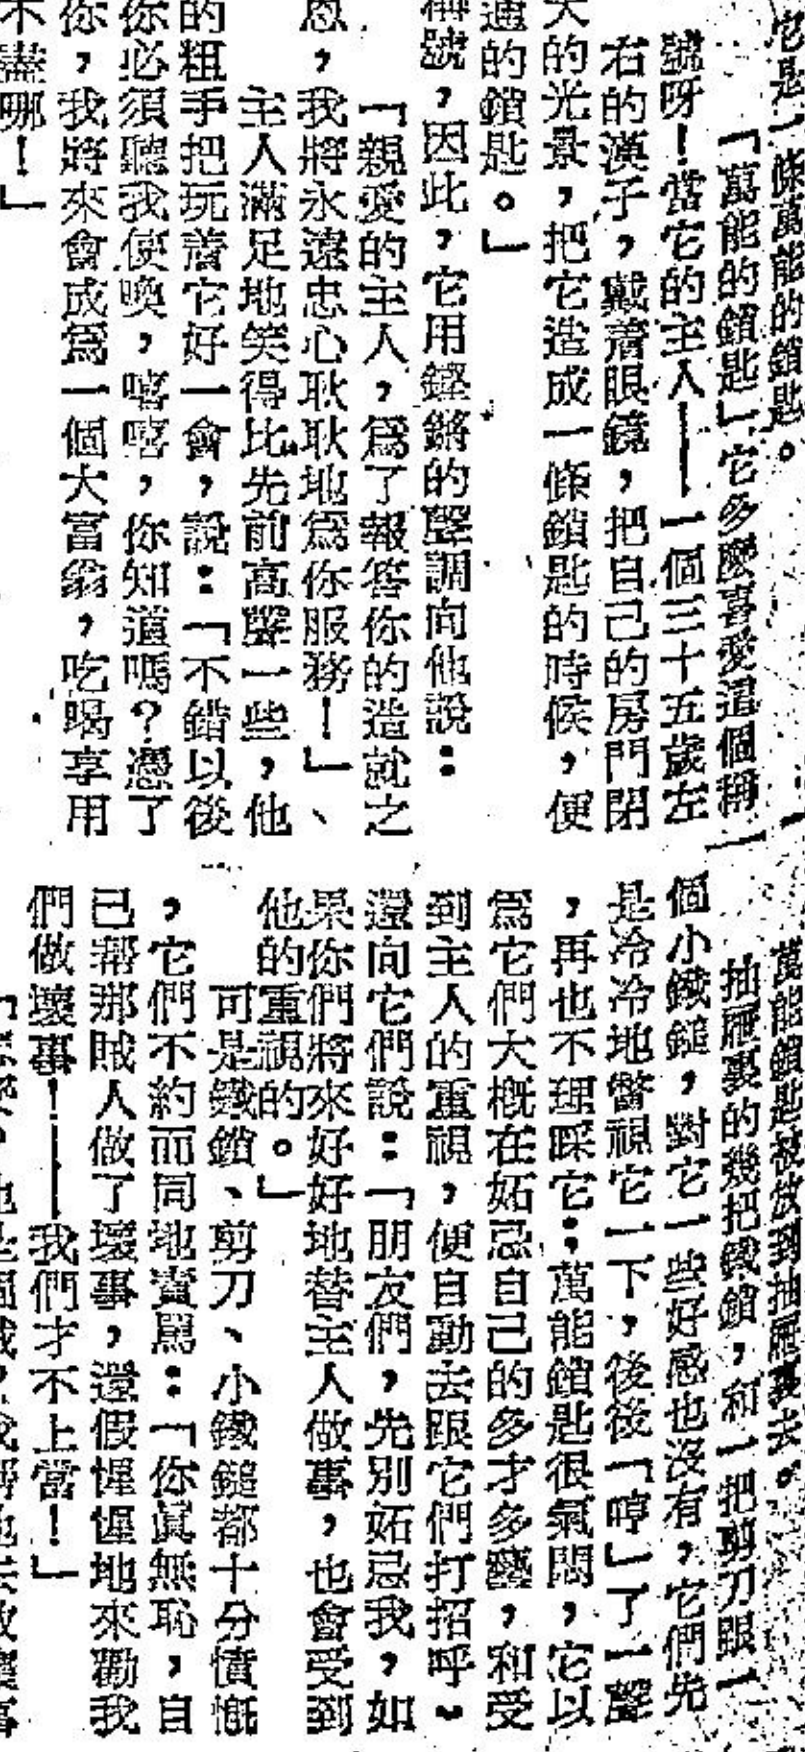 它是一條萬能的鎖匙。
「萬能的鎖匙」它多麼喜愛這個稱
號呀!當它的主人——一個三十五歲左
右的漢子,戴着眼鏡,把自己的房門閉
的光景,把它造成一條鎖匙的時候,便
的鎖匙。」
稱號,因此,它用鏗鏘的聲調向他說:
「親愛的主人,爲了報答你的造就之
恩,我將永遠忠心耿耿地爲你服務!」、
主人滿足地笑得比先前高聲一些,他
的粗手把玩着它好一會,說:「不錯以後
你必須聽我使喚,嘻嘻,你知道嗎?憑了
你,我將來會成爲一個大富翁,吃喝享用
不盡哪!」
萬能鎖匙被放到抽屜裏去。
抽屜裏的幾把鐵鎖,和一把剪刀跟一
個小鐵鎚,對它一些好感也沒有,它們先
是冷冷地瞥視它一下,後後「哼」了一聲
,再也不理睬它;萬能鎖匙很氣悶,它以
爲它們大概在妬忌自己的多才多藝,和受
到主人的重視,便自動去跟它們打招呼。
還向它們說:「朋友們,先別妬忌我,如
果你們將來好好地替主人做事,也會受到
他的重視的。」
可是鐵鎖、剪刀、小鐵鎚都十分憤慨
,它們不約而同地責罵:「你眞無恥,自
已幫那賊人做了壞事,還假惺惺地來勸我
們做壞事!——我們才不上當!」